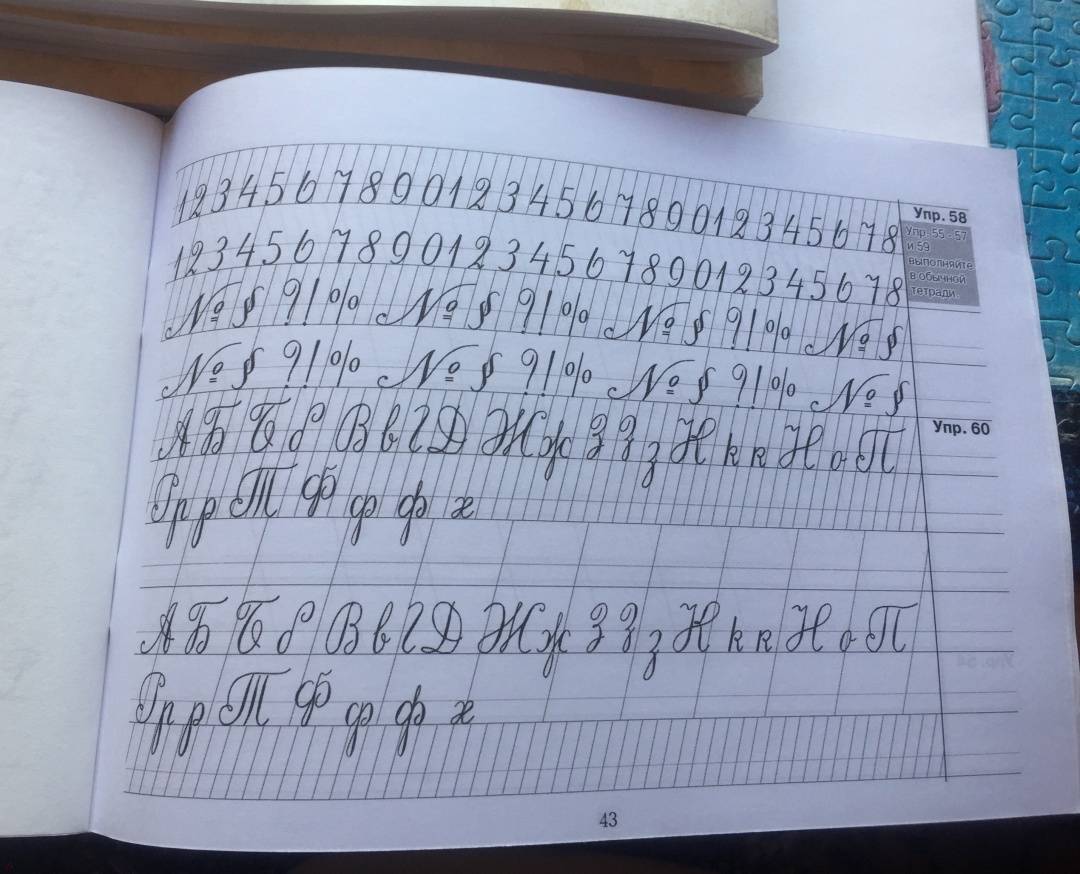 1234567890123456789012345678
Упр. 58
Упр. 55 - 57
и 59
выполняйте
в обычной
тетради.
1234567890123456789012345678
№ § ?!% № § ?!% № § ?!% № §
№ § ?!% № § ?!% № § ?!% № §
А Б Б б В в Г Д Ж ж З З з Н к к Н о П
Упр. 60
Р р р Т Ф ф ф х
А Б Б б В в Г Д Ж ж З З з Н к к Н о П
Р р р Т Ф ф ф х
43